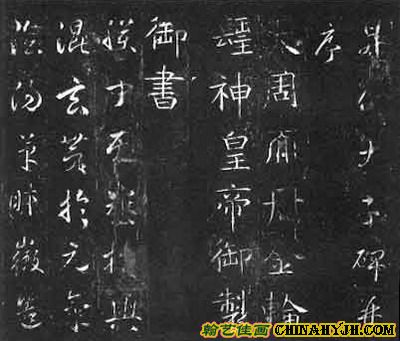 昇仙太子碑并
序
大周天冊金輪
聖神皇帝御製
御書
朕聞天地權輿
混玄黃於元氣
陰陽草昧徵造
翰艺佳画 CHINAHYJH.COM